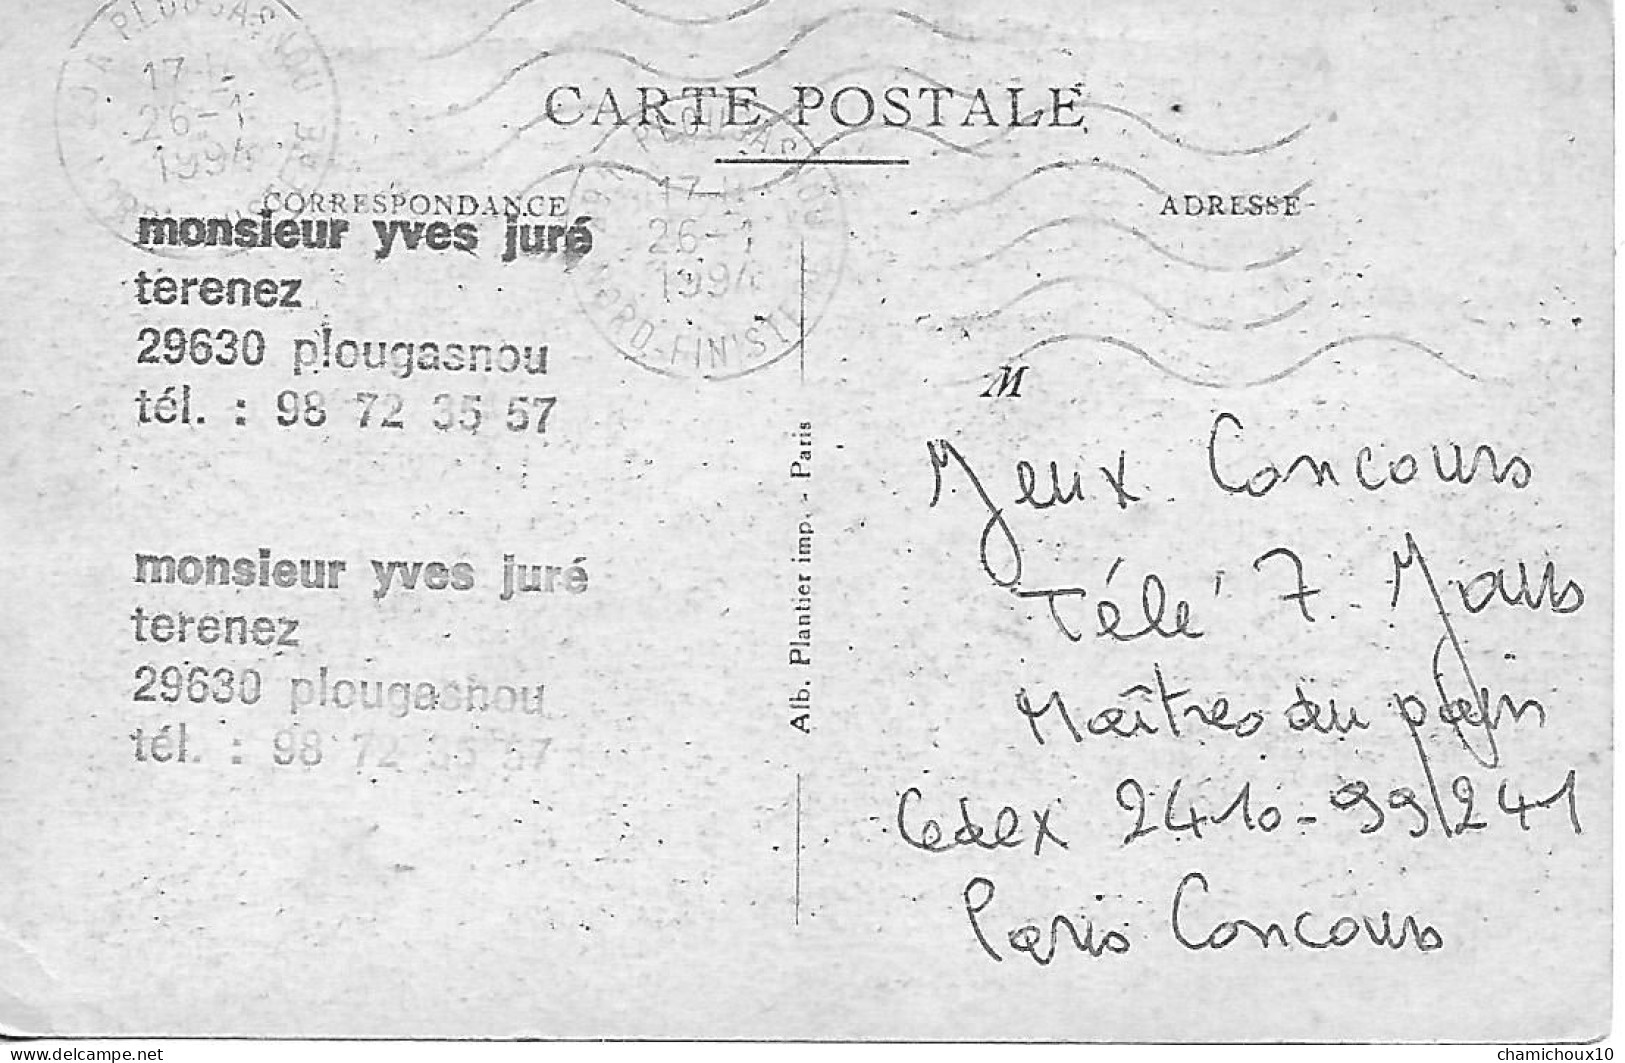 PLOUGASNOU
17-H
26-1
1994
CARTE POSTALE
PLOUGASNOU
17-H
26-1
1994
NORD-FINISTERE
CORRESPONDANCE
ADRESSE
monsieur yves juré
terenez
29630 plougasnou
tél. : 98 72 35 57
monsieur yves juré
terenez
29630 plougasnou
tél. : 98 72 35 57
Alb. Plantier imp. - Paris
M
Jeux Concours
Télé 7 Jours
Maîtres du pain
Cedex 2410-99/241
Paris Concours
www.delcampe.net
chamichoux10